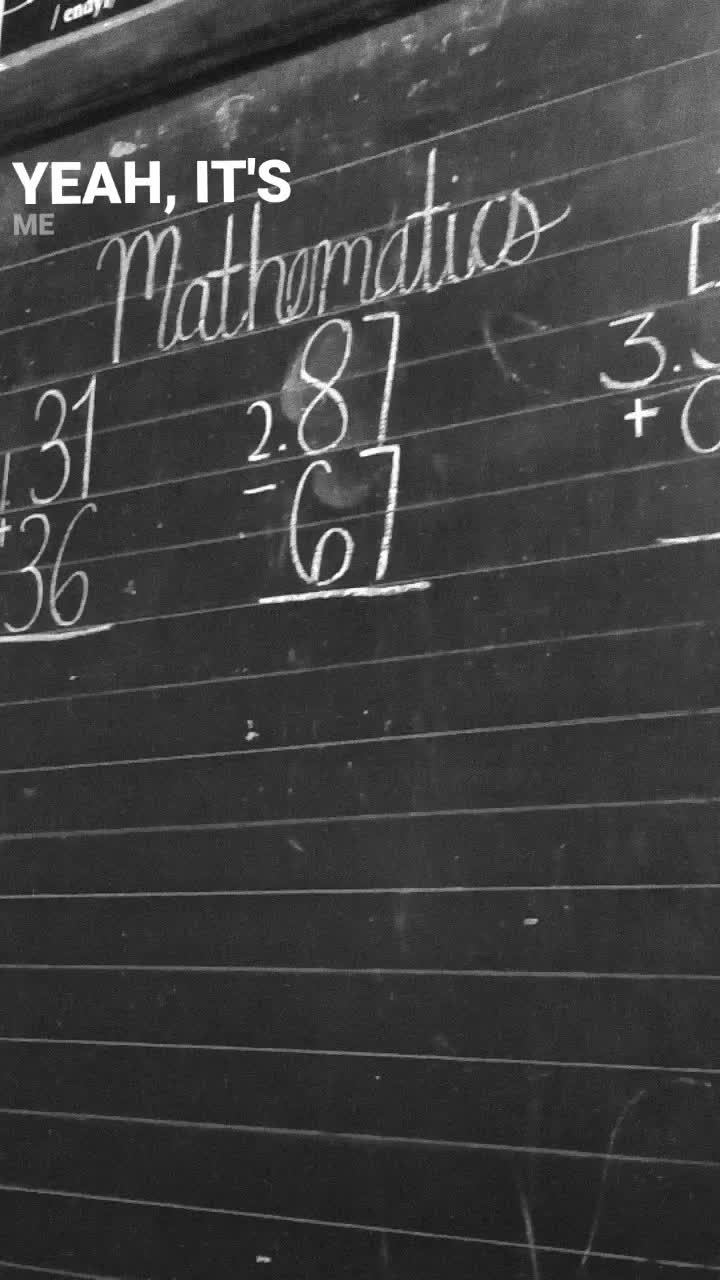 YEAH, IT'S
ME
Mathematics
31
+36
2. 87
- 67
3.
+